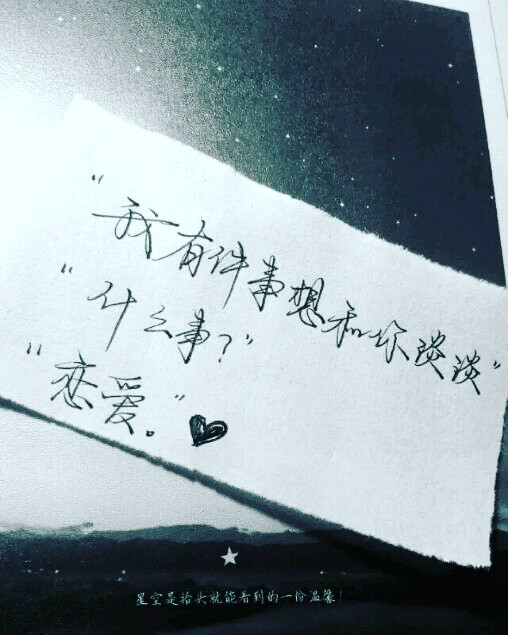 "我有件事想和你谈谈"
"什么事?"
"恋爱。"
星空是抬头就能看到的一份温馨!